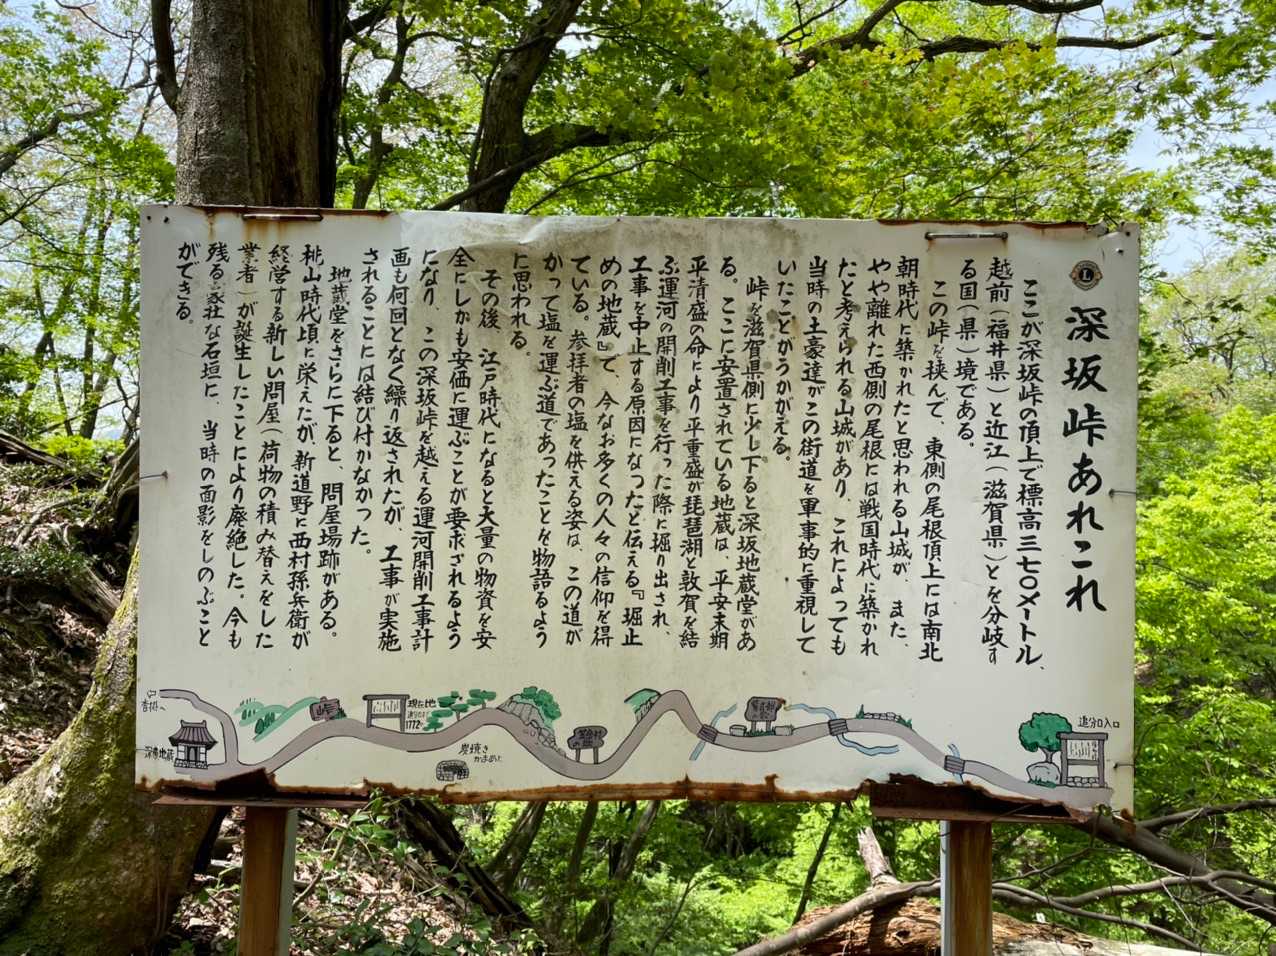 深坂峠あれこれ
ここが深坂峠の頂上で標高三七〇メートル。
越前(福井県)と近江(滋賀県)とを分岐す
る国(県)境である。
この峠を挟んで、東側の尾根頂上には南北
朝時代に築かれたと思われる山城が、また、
やや離れた西側の尾根には戦国時代に築かれ
たと考えられる山城があり、これによっても
当時の土豪達がこの街道を軍事的に重視して
いたことがうかがえる。
峠を滋賀県側に少し下ると深坂地蔵堂があ
る。ここに安置されている地蔵は、平安末期
平清盛の命により平重盛が琵琶湖と敦賀を結
ぶ運河の開削工事を行った際に掘り出され、
工事を中止する原因になったと伝える『堀止
めの地蔵』で、今なお多くの人々の信仰を得
ている。参拝者の塩を供える姿は、この道が
かって塩を運ぶ道であったことを物語るよう
に思われる。
その後、江戸時代になると大量の物資を安
全にしかも安価に運ぶことが要求されるよう
になり、この深坂峠を越える運河開削工事計
画も何回となく繰り返されたが、工事が実施
されることには結び付かなかった。
地蔵堂をさらに下ると、問屋場跡がある。
桃山時代頃に栄えたが、新道野に西村孫兵衛が
経営する新しい問屋(荷物の積み替えをした
業者)が誕生したことにより廃絶した。今も
残る立派な石垣に、当時の面影をしのぶこと
ができる。
深坂地蔵
峠
現在地
172m
炭焼き
かまあと
追分口入口